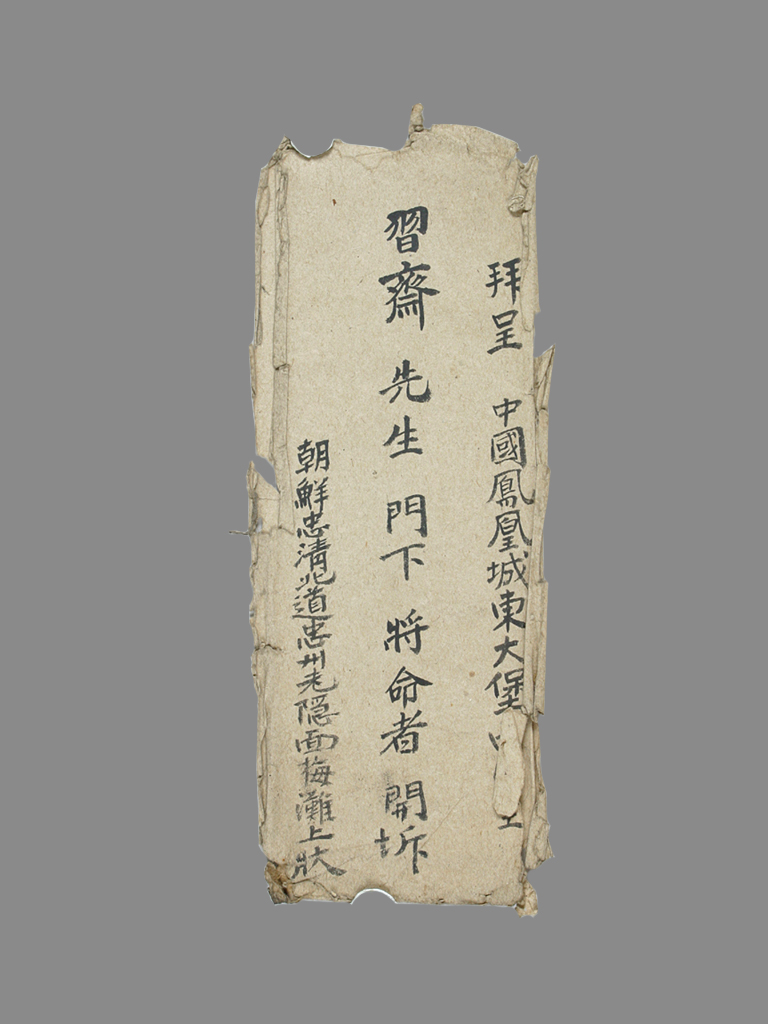 拜呈 中國鳳凰城東大堡
習齋 先生 門下 將命者 開坼
朝鮮忠清北道忠州老隠面梅灘上狀